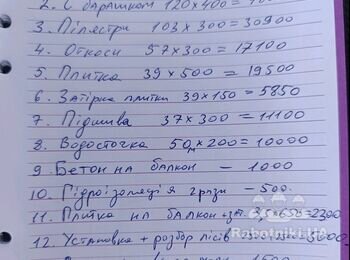 2. С барашком 120 х 400 =
3. Пілястри 103 х 300 = 30900
4. Откоси 57 х 300 = 17100
5. Плитка 39 х 500 = 19500
6. Затірка плитки 39 х 150 = 5850
7. Підшива 37 х 300 = 11100
8. Водосточка 50м х 200 = 10000
9. Бетон на балкон – 1000
10. Гідроізоляція грязи – 500.
11. Плитка на балкон + зат. 3,5х650 = 2300
12. Установка + розбор лісів
Rabotniki.UA